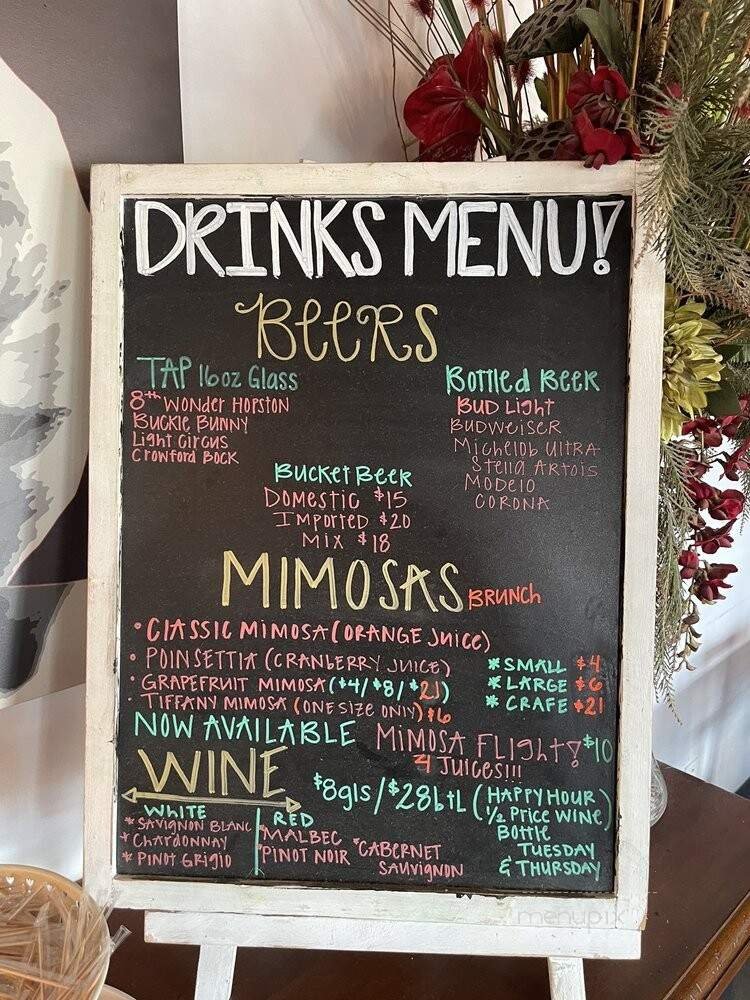 DRINKS MENU!
BEERS
TAP 16oz Glass
8th Wonder Hopston
Buckle Bunny
Light Circus
Crowford Bock
Bottled Beer
Bud Light
Budweiser
Michelob Ultra
Stella Artois
Modelo
CORONA
Bucket Beer
Domestic $15
Imported $20
Mix $18
MIMOSAS BRUNCH
• Classic Mimosa (Orange Juice)
• Poinsettia (Cranberry Juice)
• Grapefruit Mimosa ($4/$8/$21)
• Tiffany Mimosa (One size only) $6
* SMALL $4
* LARGE $6
* CRAFE $21
NOW AVAILABLE MIMOSA FLIGHT! $10
4 JUICES!!!
WINE
$8gls/$28btL (HAPPY HOUR
1/2 Price WINE)
Bottle
TUESDAY
& THURSDAY
WHITE
* Savignon Blanc
* Chardonnay
* Pinot Grigio
RED
* MALBEC
* PINOT NOIR
* CABERNET
SAUVIGNON
menupix